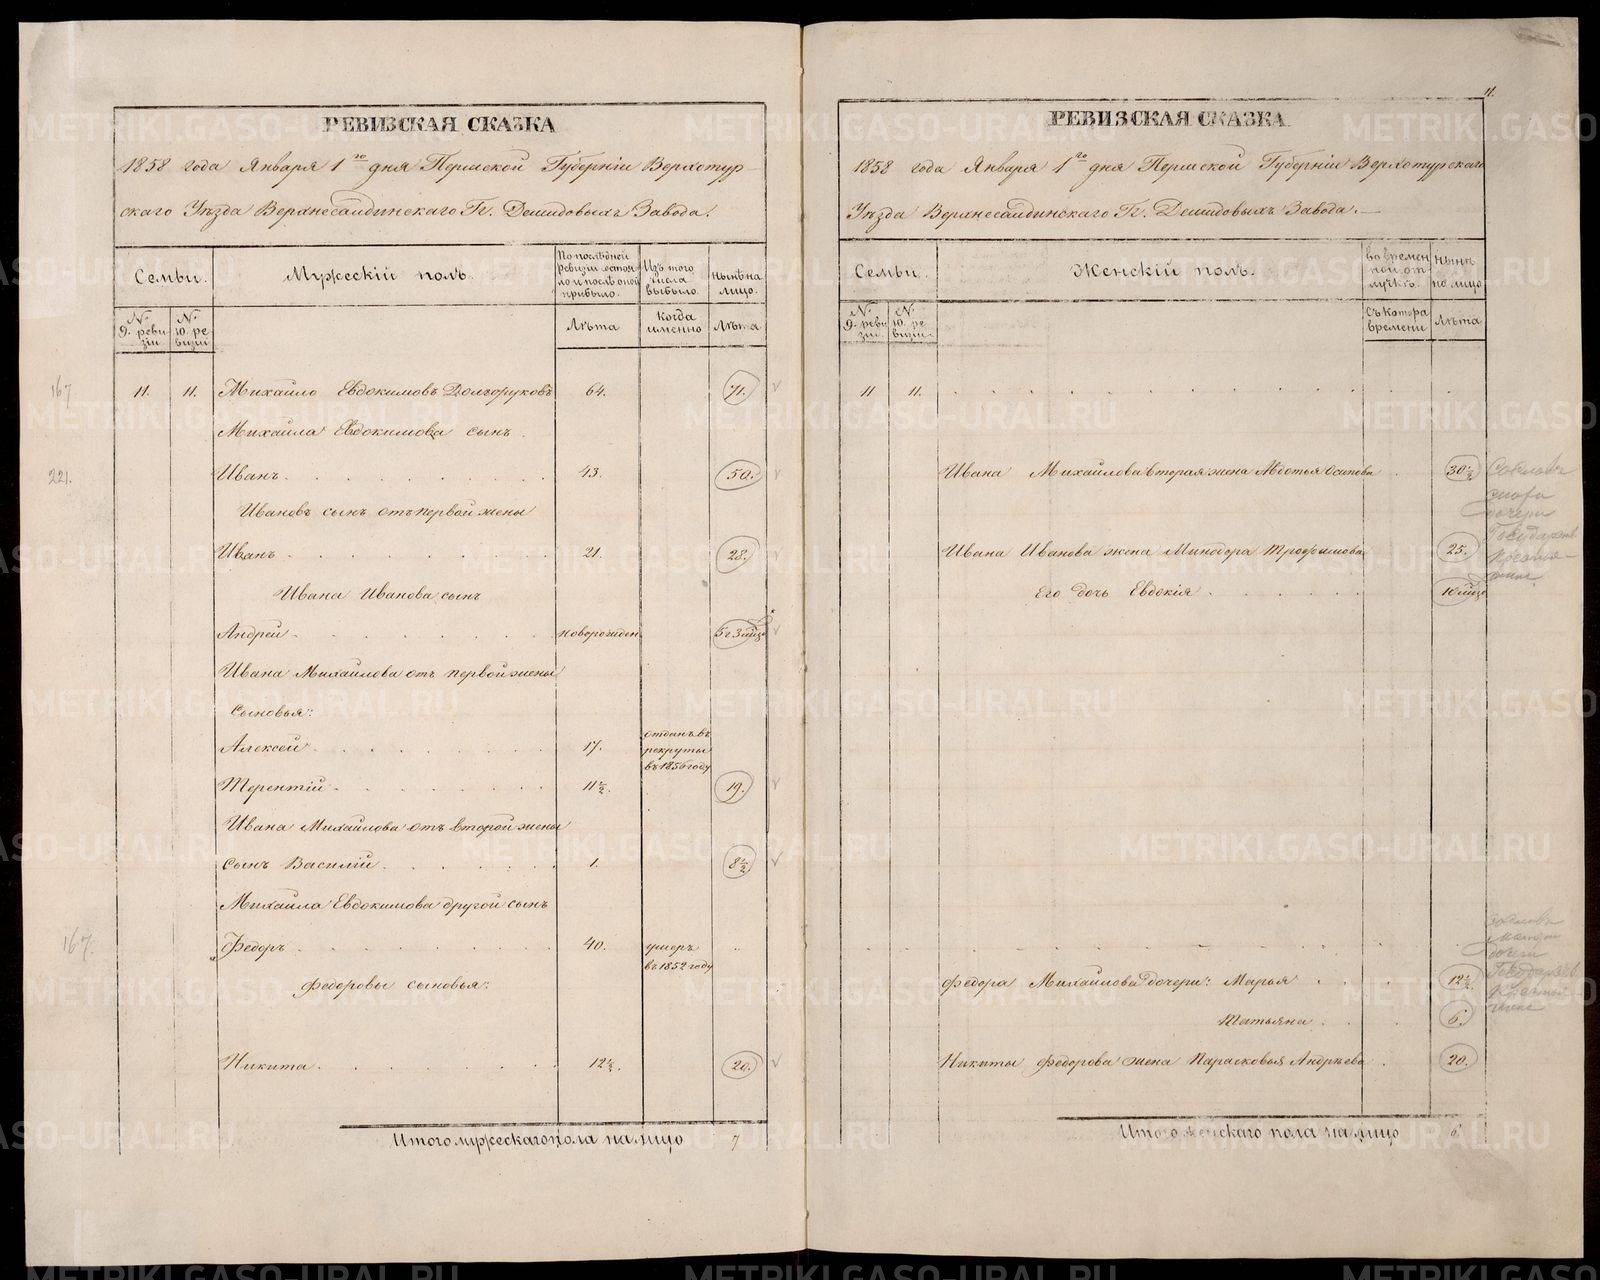 РЕВИЗСКАЯ СКАЗКА
1858 года Января 1го дня Пермской Губерніи Верхотур-
скаго Уѣзда Верхнесалдинскаго Гг. Демидовыхъ Завода.
Семьи.
Мужескій полъ.
По послѣдней ревизіи состояло и послѣ оной прибыло.
Изъ того числа выбыло.
Нынѣ на лицо.
№ 9. ревизіи
№ 10. ревизіи
Лѣта
Когда именно
Лѣта
167
11. 11. Михайло Евдокимовъ Долгоруковъ 64. 71.
Михайла Евдокимова сынъ.
221. Иванъ 43. 50.
Ивановъ сынъ отъ первой жены
Иванъ 21. 28.
Ивана Иванова сынъ
Андрей новорожден. 5 г 3 мѣця
Ивана Михайлова отъ первой жены
сыновья:
Алексей 17. отданъ въ рекруты въ 1856 году
Терентій 11 1/2. 19.
Ивана Михайлова отъ второй жены
сынъ Василій 1. 8 1/2
Михайла Евдокимова другой сынъ
167. Федоръ 40. умеръ въ 1852 году
Федоровы сыновья:
Никита 12 1/2. 20.
Итого мужескаго пола на лицо 7
11.
РЕВИЗСКАЯ СКАЗКА
1858 года Января 1го дня Пермской Губерніи Верхотурскаго
Уѣзда Верхнесалдинскаго Гг. Демидовыхъ Завода.
Семьи.
Женскій полъ.
во временной отлучкѣ.
Нынѣ на лицо
№ 9. ревизіи
№ 10. ревизіи.
Съ котора времени
Лѣта
11 11.
Ивана Михайлова вторая жена Авдотья Осипова 30 1/2
Ивана Иванова жена Минодора Трофимова 25.
Его дочь Евдокія 10 мѣця
Федора Михайлова дочери: Марья 12 1/2
Татьяна 6.
Никиты Федорова жена Парасковья Андрѣева 20.
Итого женскаго пола на лицо 6
METRIKI.GASO-URAL.RU